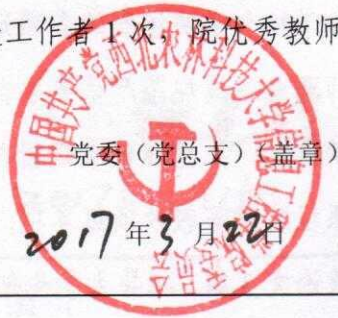 工作者1次，院优秀教师
中国共产党西北农林科技大学信息工程学院委员会
党委（党总支）（盖章）
2017年3月22日